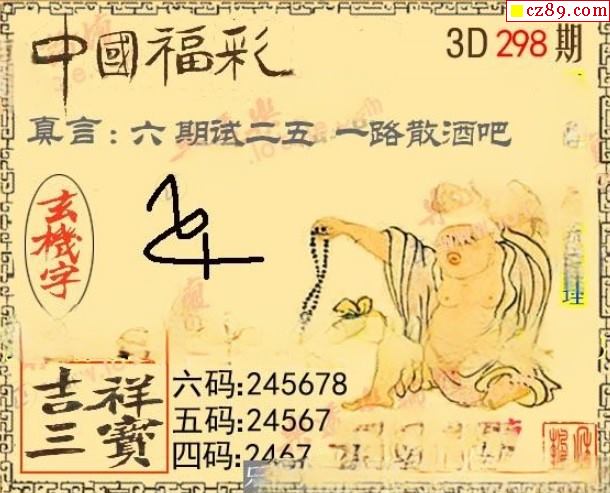 cz89.com
中國福彩
3D 298 期
真言：六 期试二五 一路散酒吧
玄機字
吉祥三寶
六码:245678
五码:24567
四码:2467